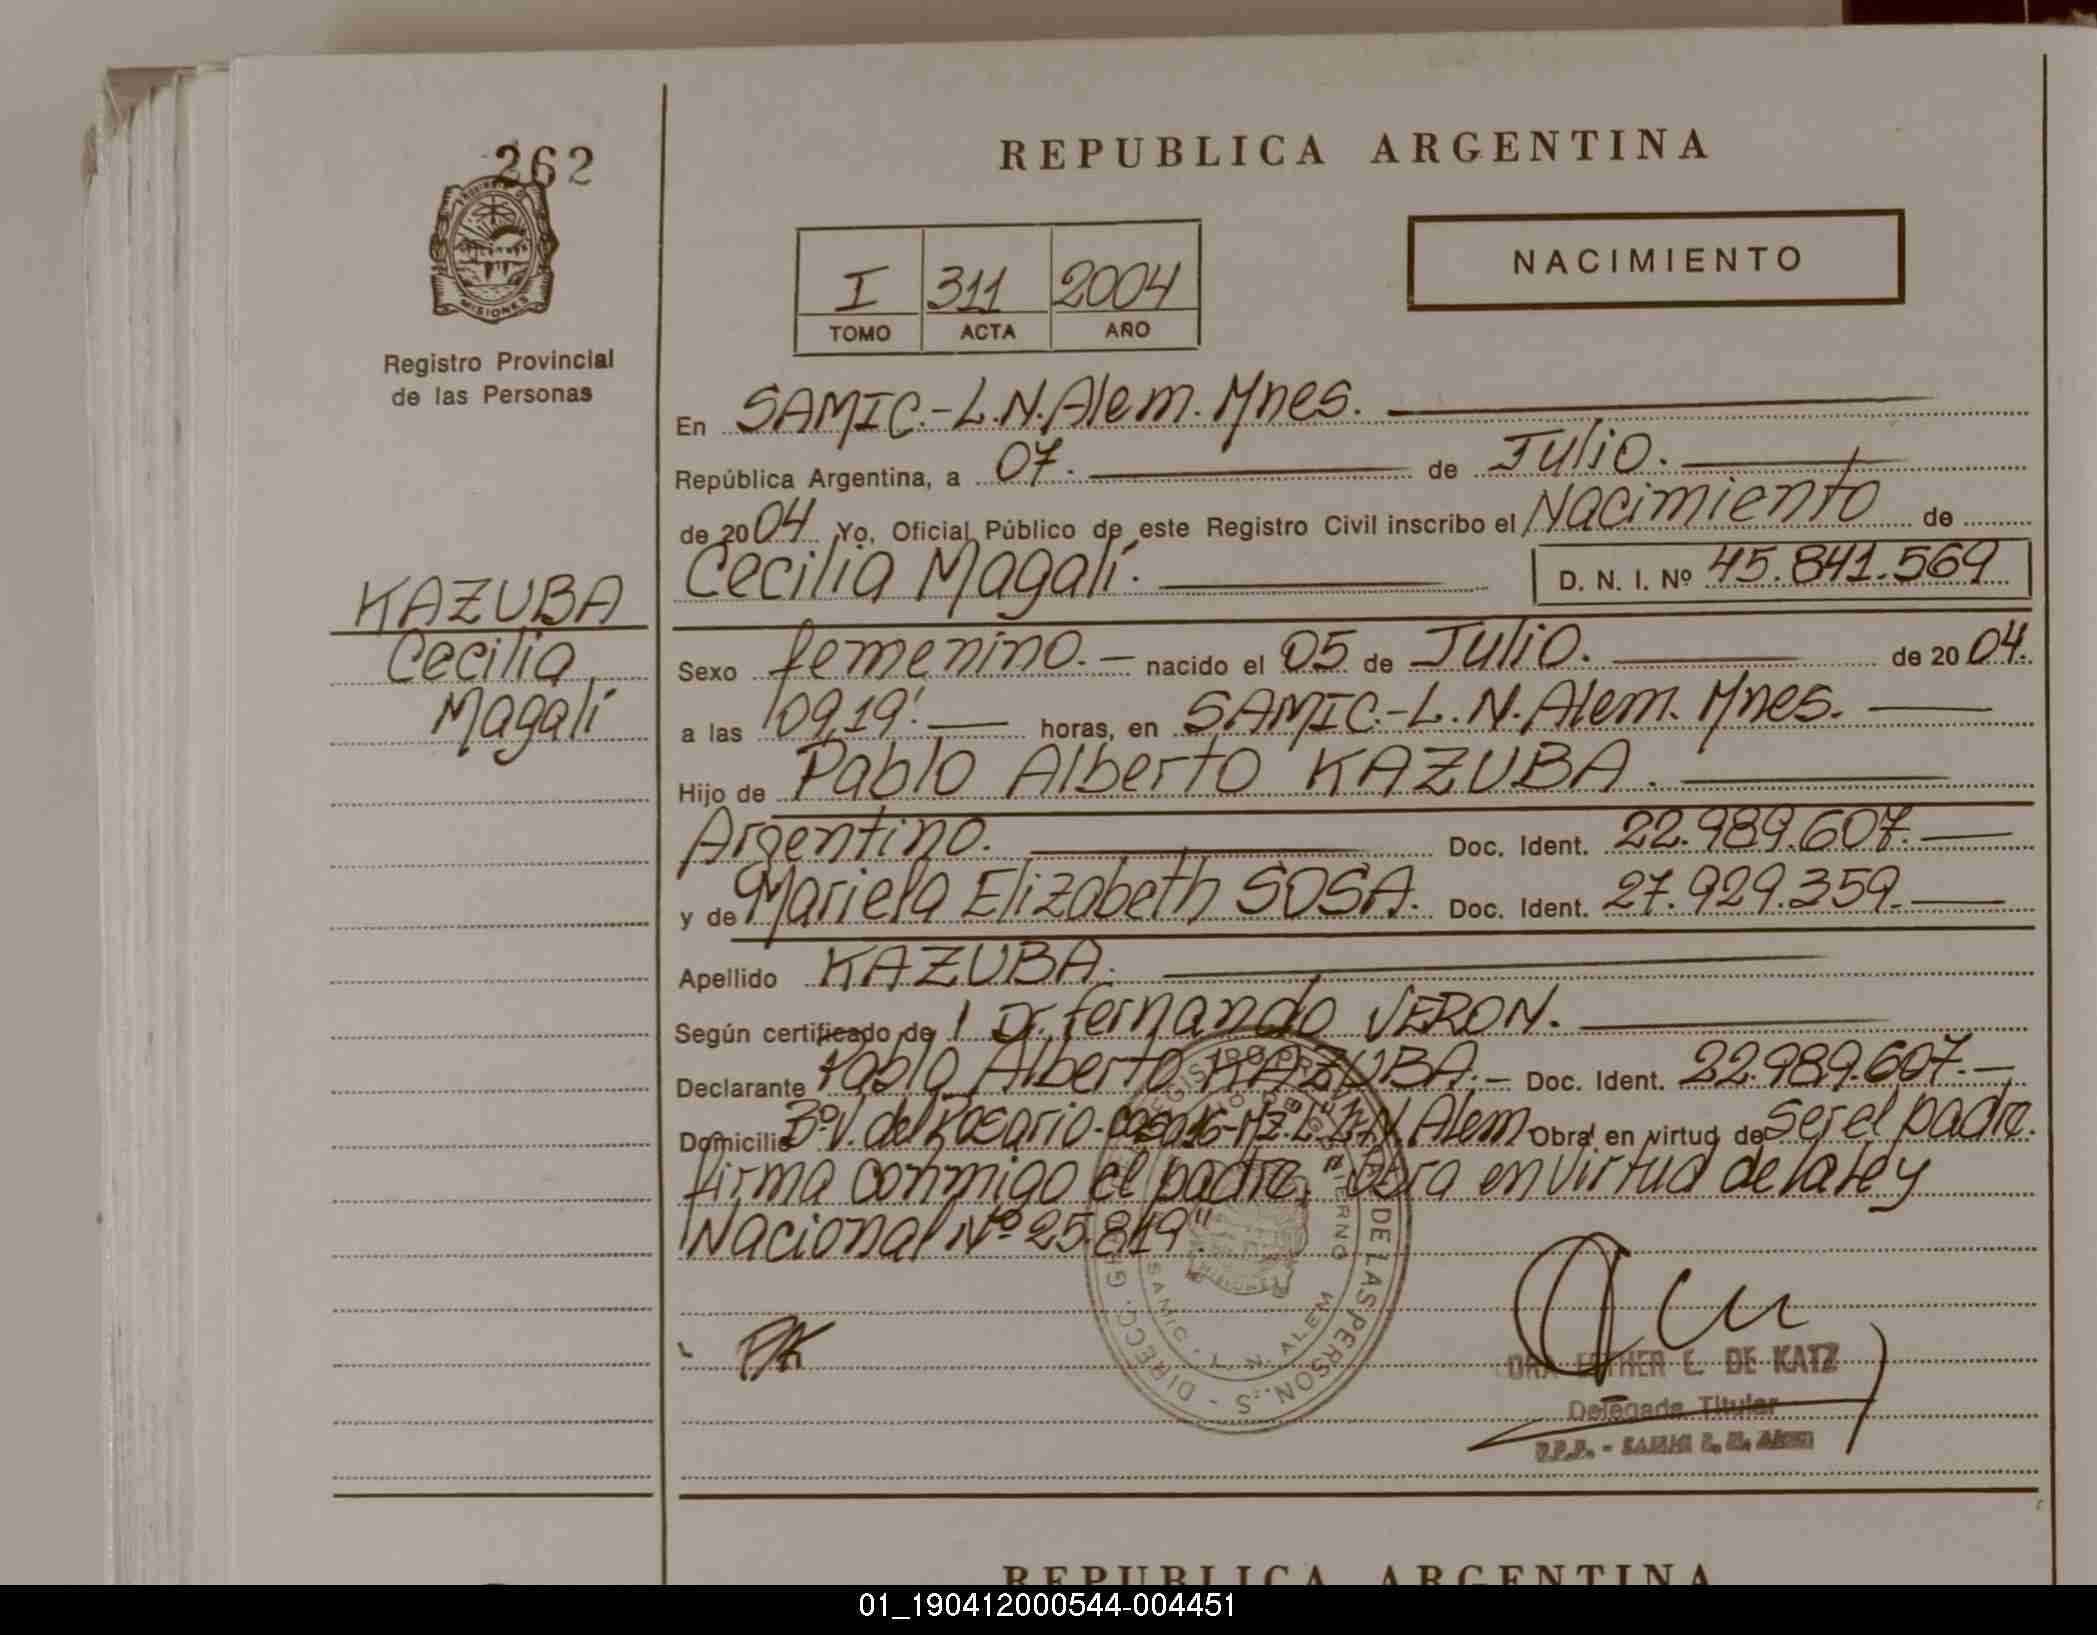 262
MISIONES
Registro Provincial
de las Personas
REPUBLICA ARGENTINA
NACIMIENTO
I 311 2004
TOMO ACTA AÑO
En SAMIC.-L.N.Alem. Mnes.
República Argentina, a 07. de Julio.
de 2004 Yo, Oficial Público de este Registro Civil inscribo el Nacimiento de
Cecilia Magalí. D. N. I. Nº 45.841.569
KAZUBA
Cecilia
Magalí
Sexo femenino.- nacido el 05 de Julio. de 2004.
a las 09,19'. horas, en SAMIC.-L.N.Alem. Mnes.
Hijo de Pablo Alberto KAZUBA.
Argentino. Doc. Ident. 22.989.607.
y de Mariela Elizabeth SOSA. Doc. Ident. 27.929.359.
Apellido KAZUBA.
Según certificado de l Dr. fernando VERON.
Declarante Pablo Alberto KAZUBA.- Doc. Ident. 22.989.607.-
Domicilio Bº.V. del Rosario- casa 16-Mz. L.N. Alem Obra en virtud de Ser el padre.
firma conmigo el padre, "Obra en virtud de la ley
Nacional Nº 25.819".
PK
SAMIC - L. N. ALEM
DRA. ESTHER E. DE KATZ
Delegada Titular
R.P.P. - SAMIC L. N. Alem
REPUBLICA ARGENTINA
01_190412000544-004451